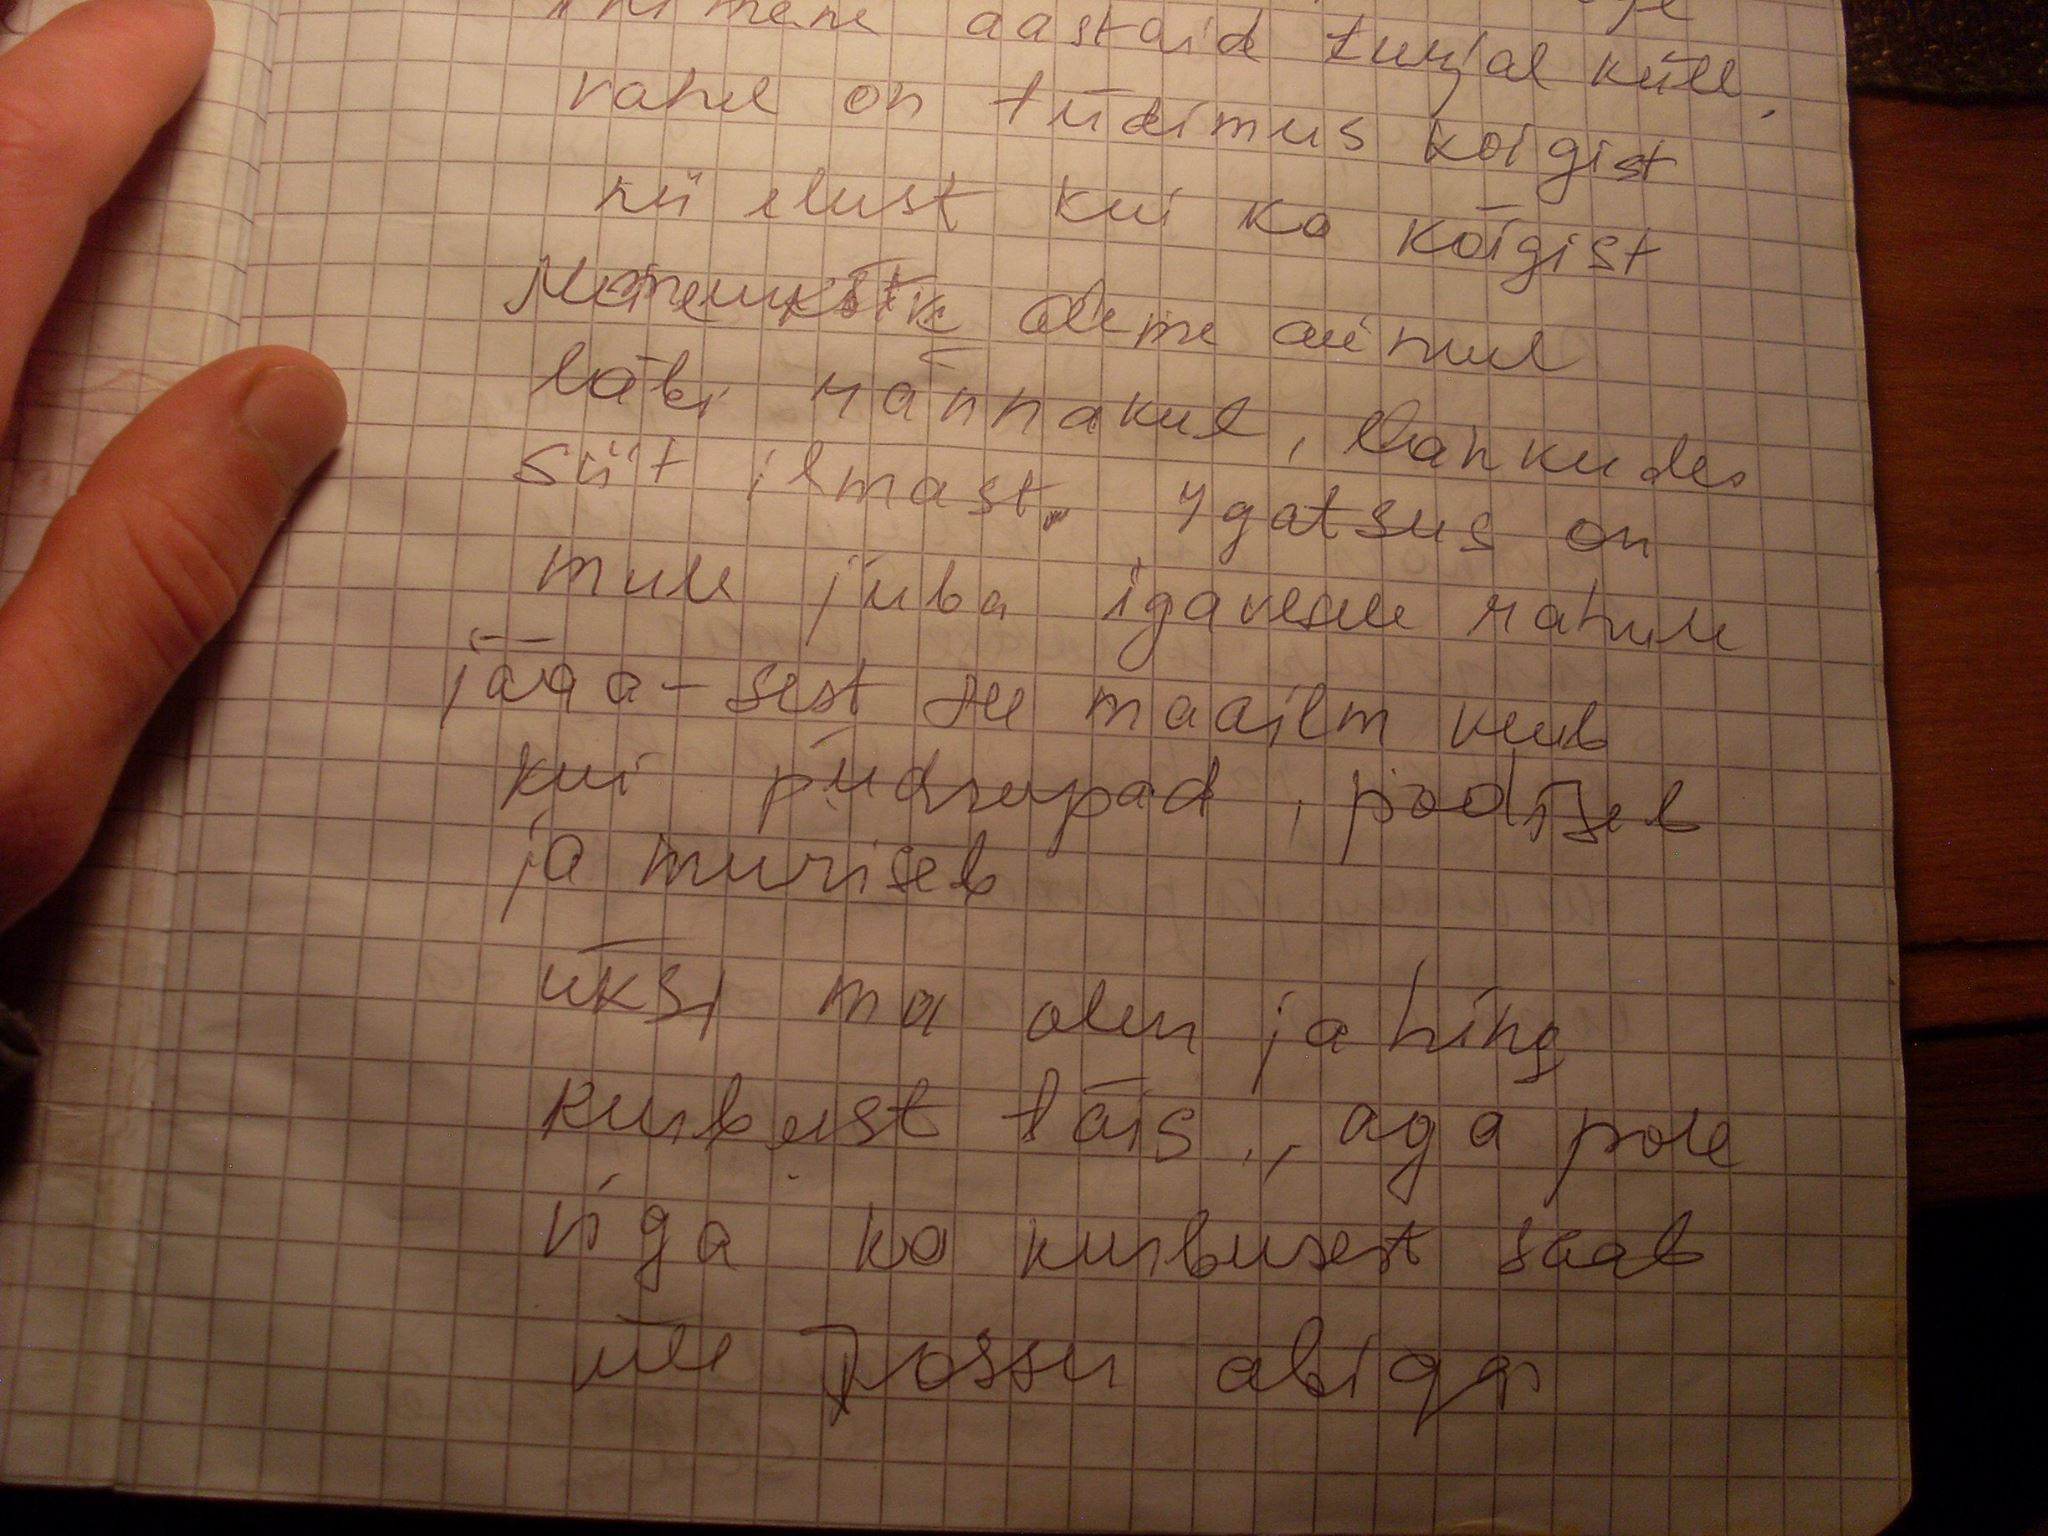 inimene aastaid turjal küll,
vahel on tüdimus kõigist
nii elust kui ka kõigist
oleme ainul
läbi rännakul, lahkudes
siit ilmast. Ygatsus on
mull juba igavesele rahule
jääa - sest see maailm keeb
kui pudrupad, podiseb
ja muriseb
üksi ma olen ja hing
kurbust täis, aga pole
viga ka kurbusest saab
üle Jossu abiga